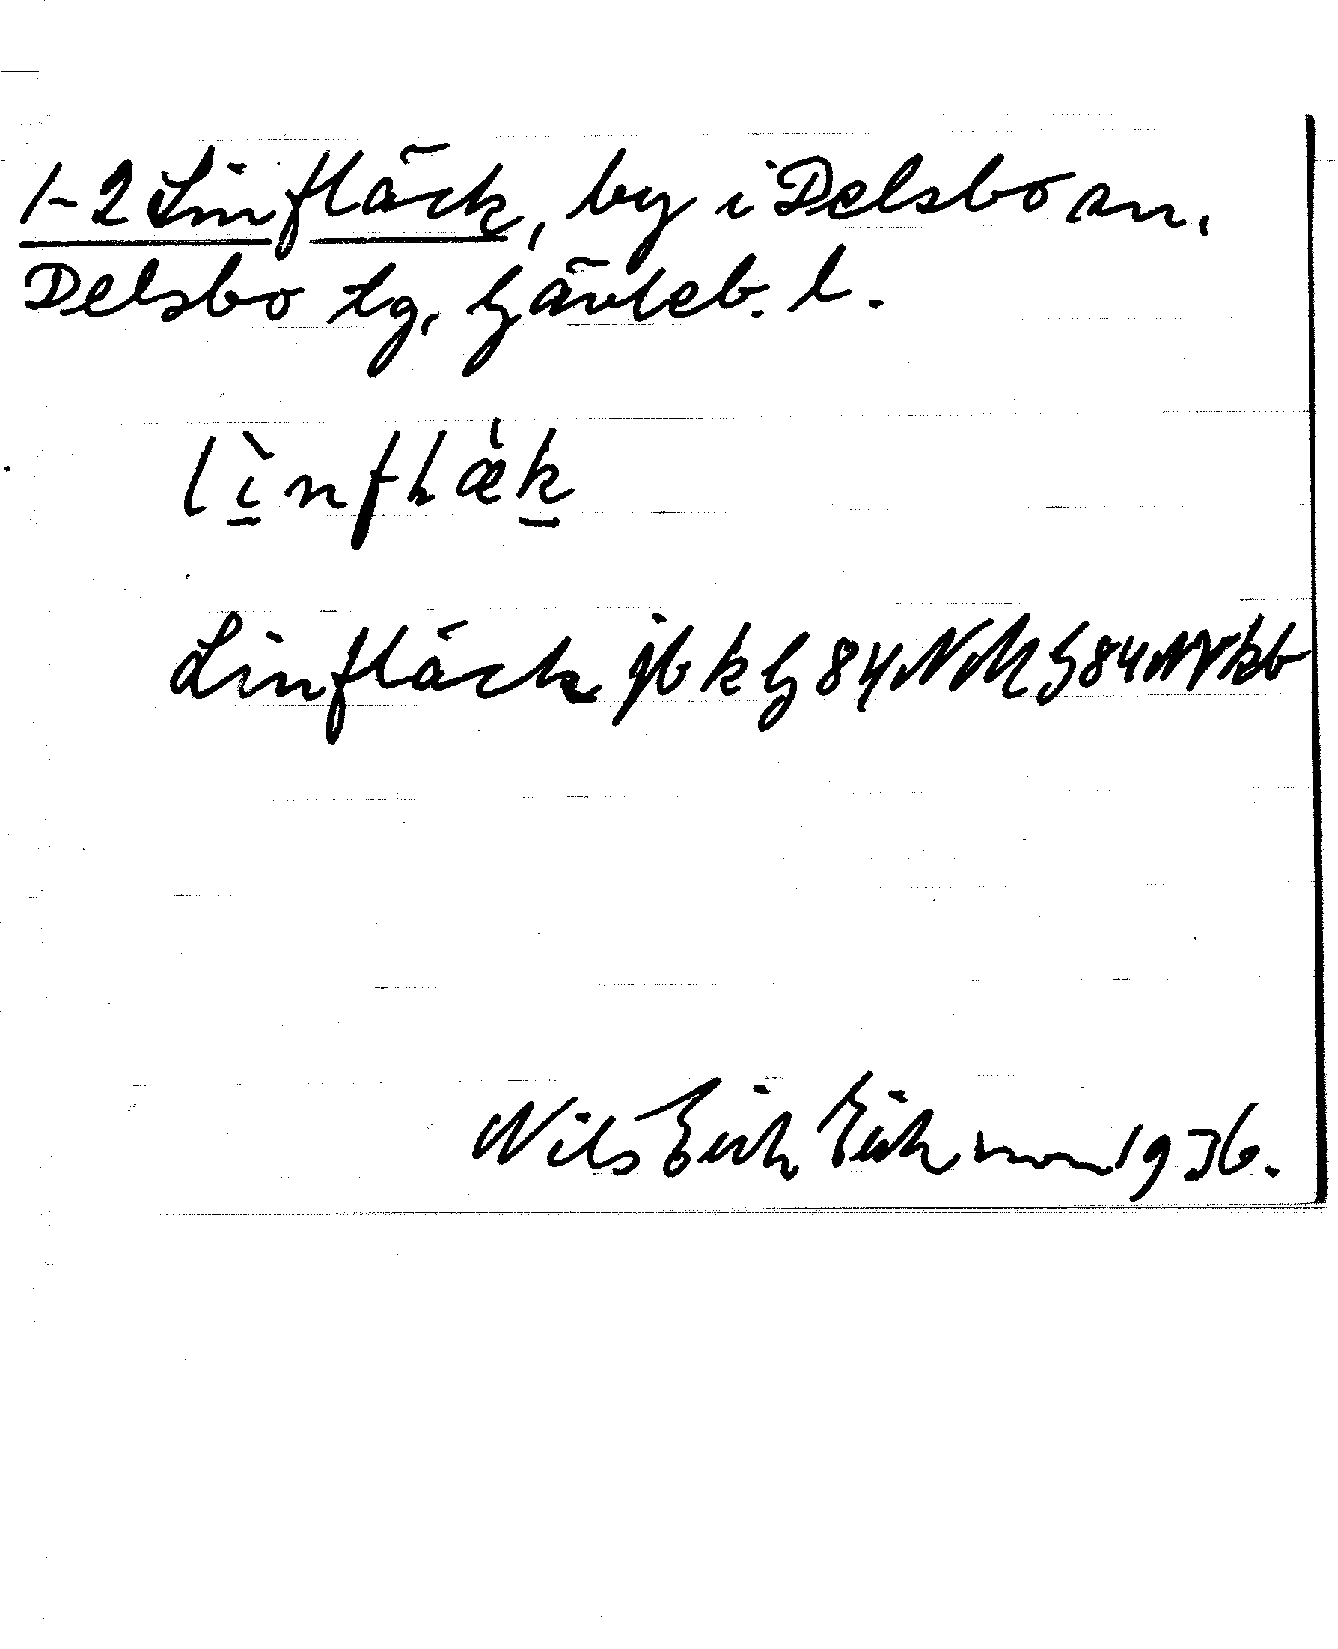 1-2 Linfläck, by i Delsbo sn.
Delsbo tg, Gävleb. l.
lìnflæ̀k
Linfläck jbkG84NM G84NV kb
Nils Erik Erikson 1936.